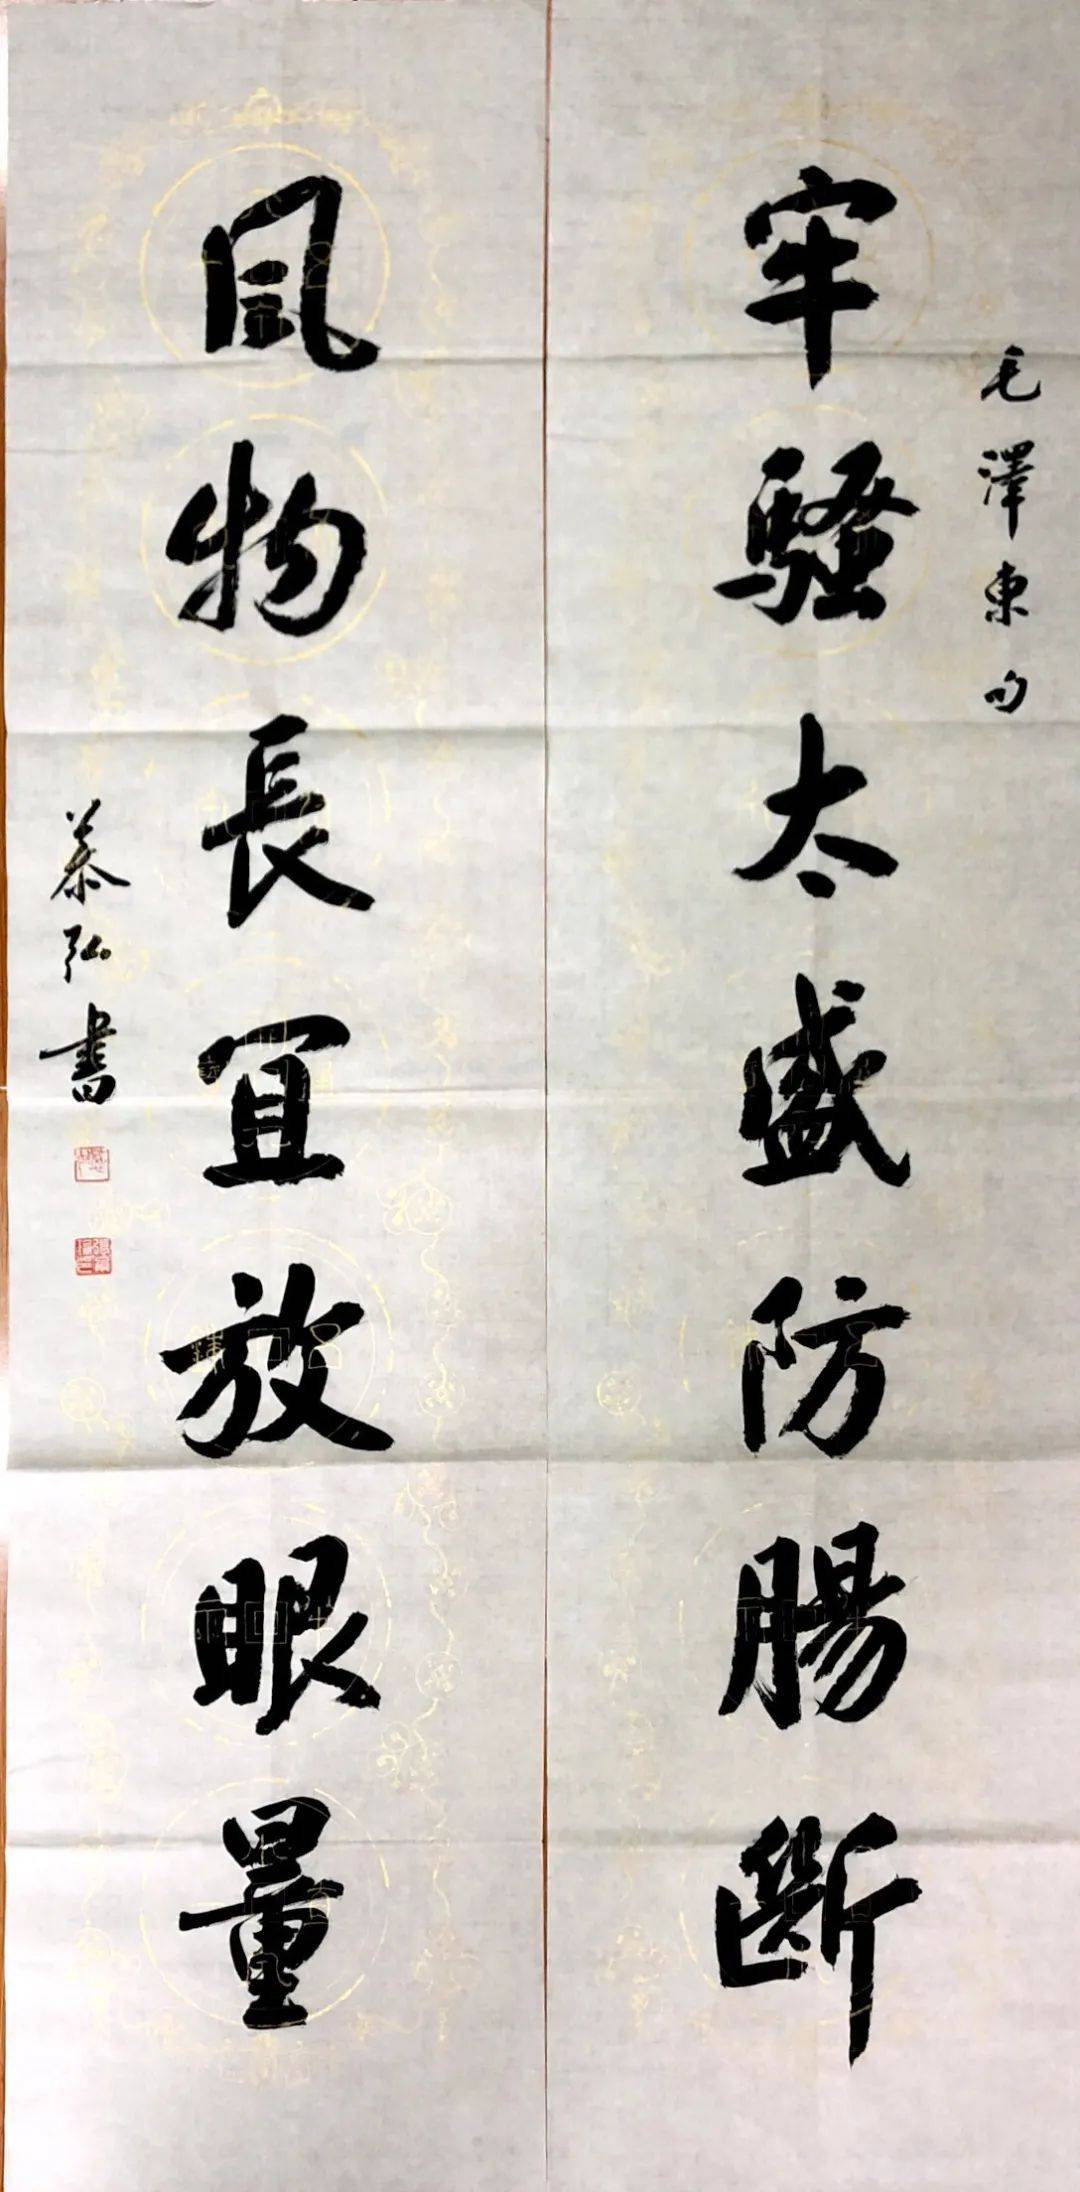 毛澤東句
牢騷太盛防腸斷
風物長宜放眼量
慕弘書